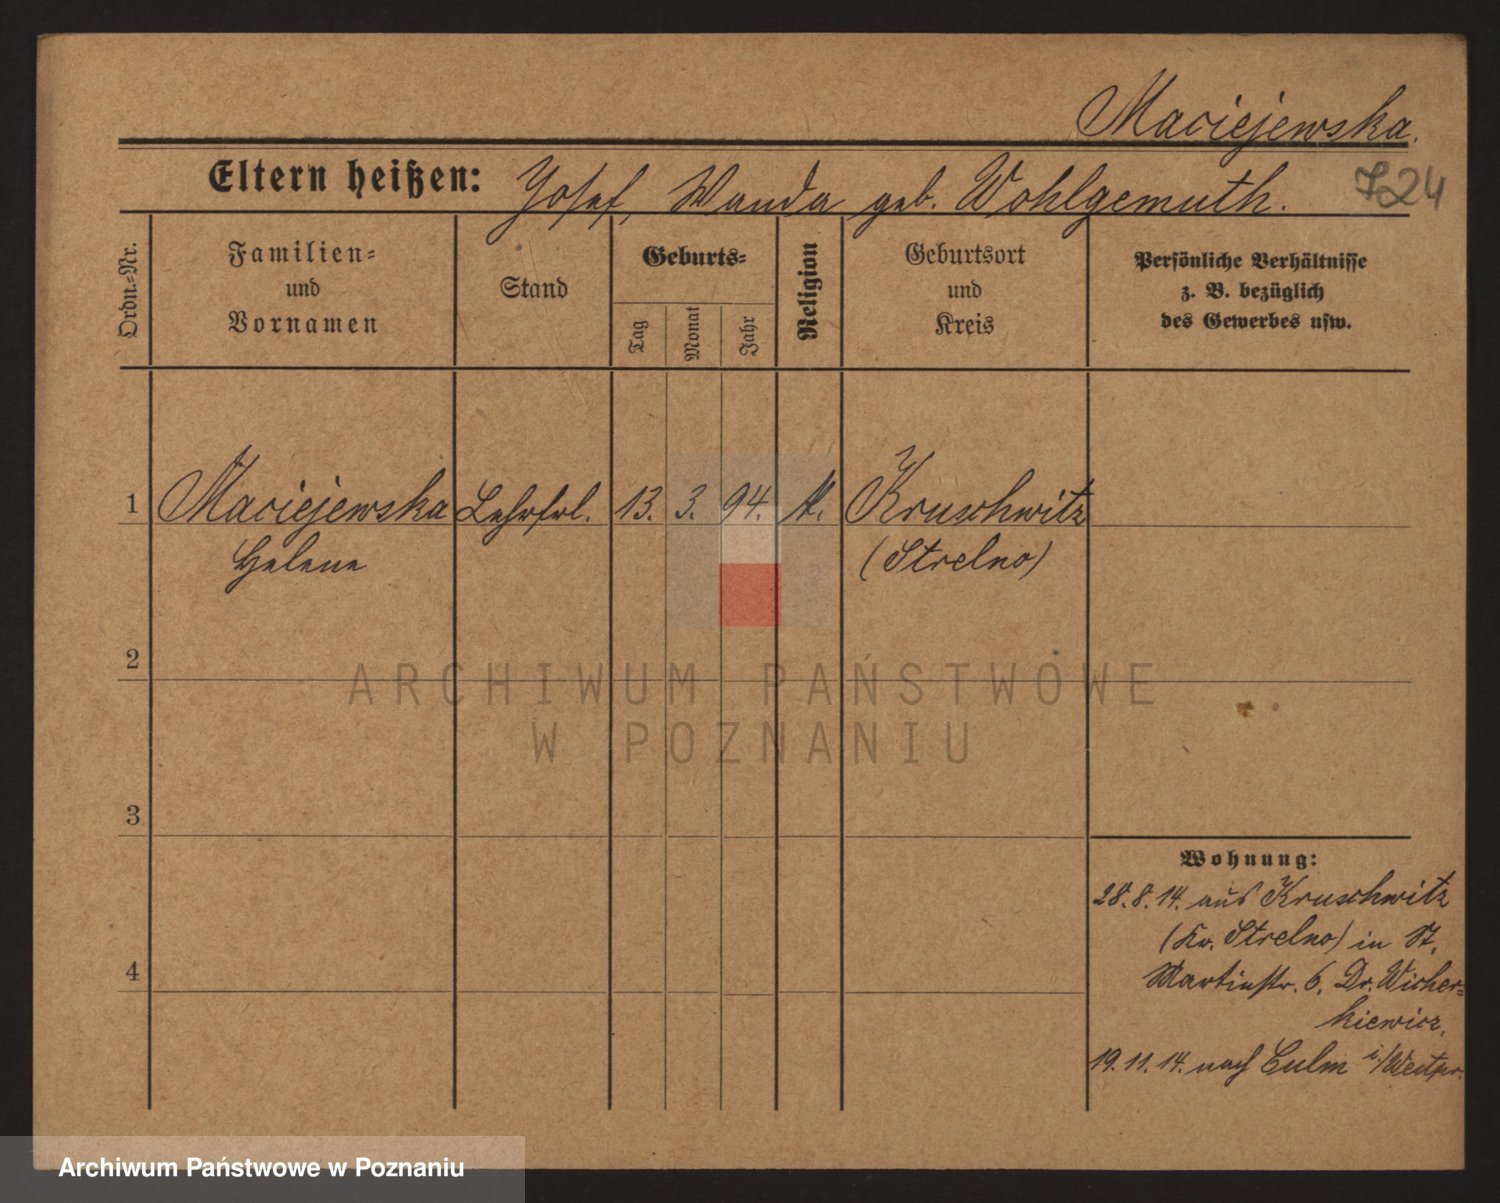 Maciejewska.
Eltern heißen: Josef, Wanda geb. Wohlgemuth.
724
Ordn.-Nr.
Familien-
und
Vornamen
Stand
Geburts-
Tag
Monat
Jahr
Religion
Geburtsort
und
Kreis
Persönliche Verhältnisse
z. B. bezüglich
des Gewerbes usw.
1 Maciejewska Lehrfrl. 13. 3. 94. k. Kruschwitz
Helene (Strelno)
2
ARCHIWUM PAŃSTWOWE
W POZNANIU
3
Wohnung:
28.8.14. aus Kruschwitz
(Kr. Strelno) in St.
4
Martinstr. 6. Dr. Wicher-
kiewicz,
19.11.14. nach Culm i/Westpr.
Archiwum Państwowe w Poznaniu